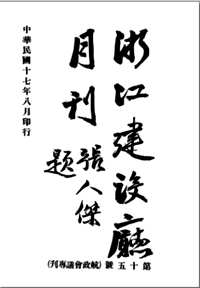 浙江建設廳
月刊
張人傑
題
中華民國十七年八月印行
第十五號（航政會議專刊）